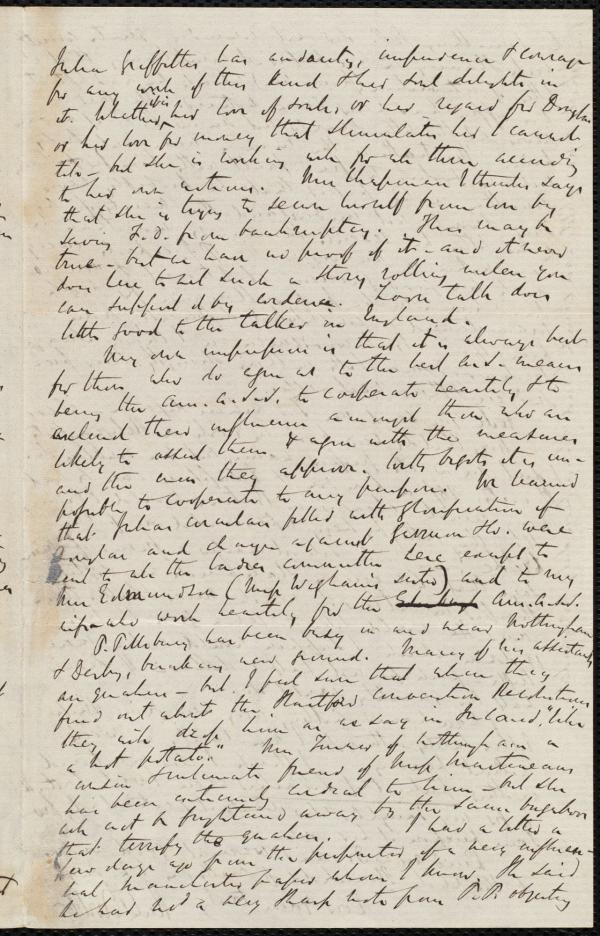 Julia Griffiths has audacity, impudence & courage
for any work of this kind & her soul delights in
it. Whether it is her love of souls, or her regard for Douglass
or her love for money that stimulates her I cannot
tell - but she is working with for all them according
to her own notions. Mrs Chapman I think says
that she is trying to secure herself from loss by
saving F.D. from bankruptcy. This may be
true - but we have no proof of it - and it never
does here to set such a story rolling unless you
can support it by evidence. Loose talk does
little good to the talker in England.
My own impression is that it is always best
for those who do agree as to the best a.s. means
being the Am. A.S.S. to cooperate heartily & to
extend their influence amongst those who are
likely to assist them & agree with the measures
and the men they approve. With bigots it is im-
possible to cooperate to any purpose. We learned
that Julias circulars filled with glorification of
Douglass and charges against Garrison &c. were
sent to all the ladies committee here except to
Mrs Edmundson (Miss Wighams sister) and to my
wife who work heartily for the Am. A.S.S.
P. Pillsbury has been busy in and near Nottingham
& Derby, breaking new ground. Many of his assistants
are quakers - but I feel sure that when they
find out about the Hartford Convention Resolutions
they will drop him or as we say in Ireland, "like
a hot potato." Mrs Turner of Nottingham a
cousin & intimate friend of Miss Martineaus
has been extremely cordial to him - but she
will not be frightened away by the same bugaboos
that terrify the quakers. I had a letter a
few days ago from the proprietor of a very influen-
tial Manchester paper whom I know. He said
he had had a very sharp note from P.P. objecting